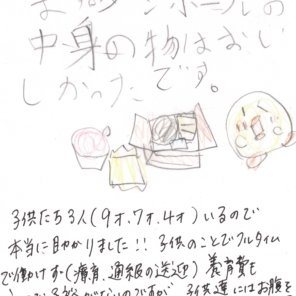 ダンボールの
中身の物はおい
しかったです。
子供たち3人(9才、7才、4才)いるので
本当に助かりました!! 子供のことでフルタイム
で働けず(療育、通級の送迎)養育費も
子供達にはお腹を